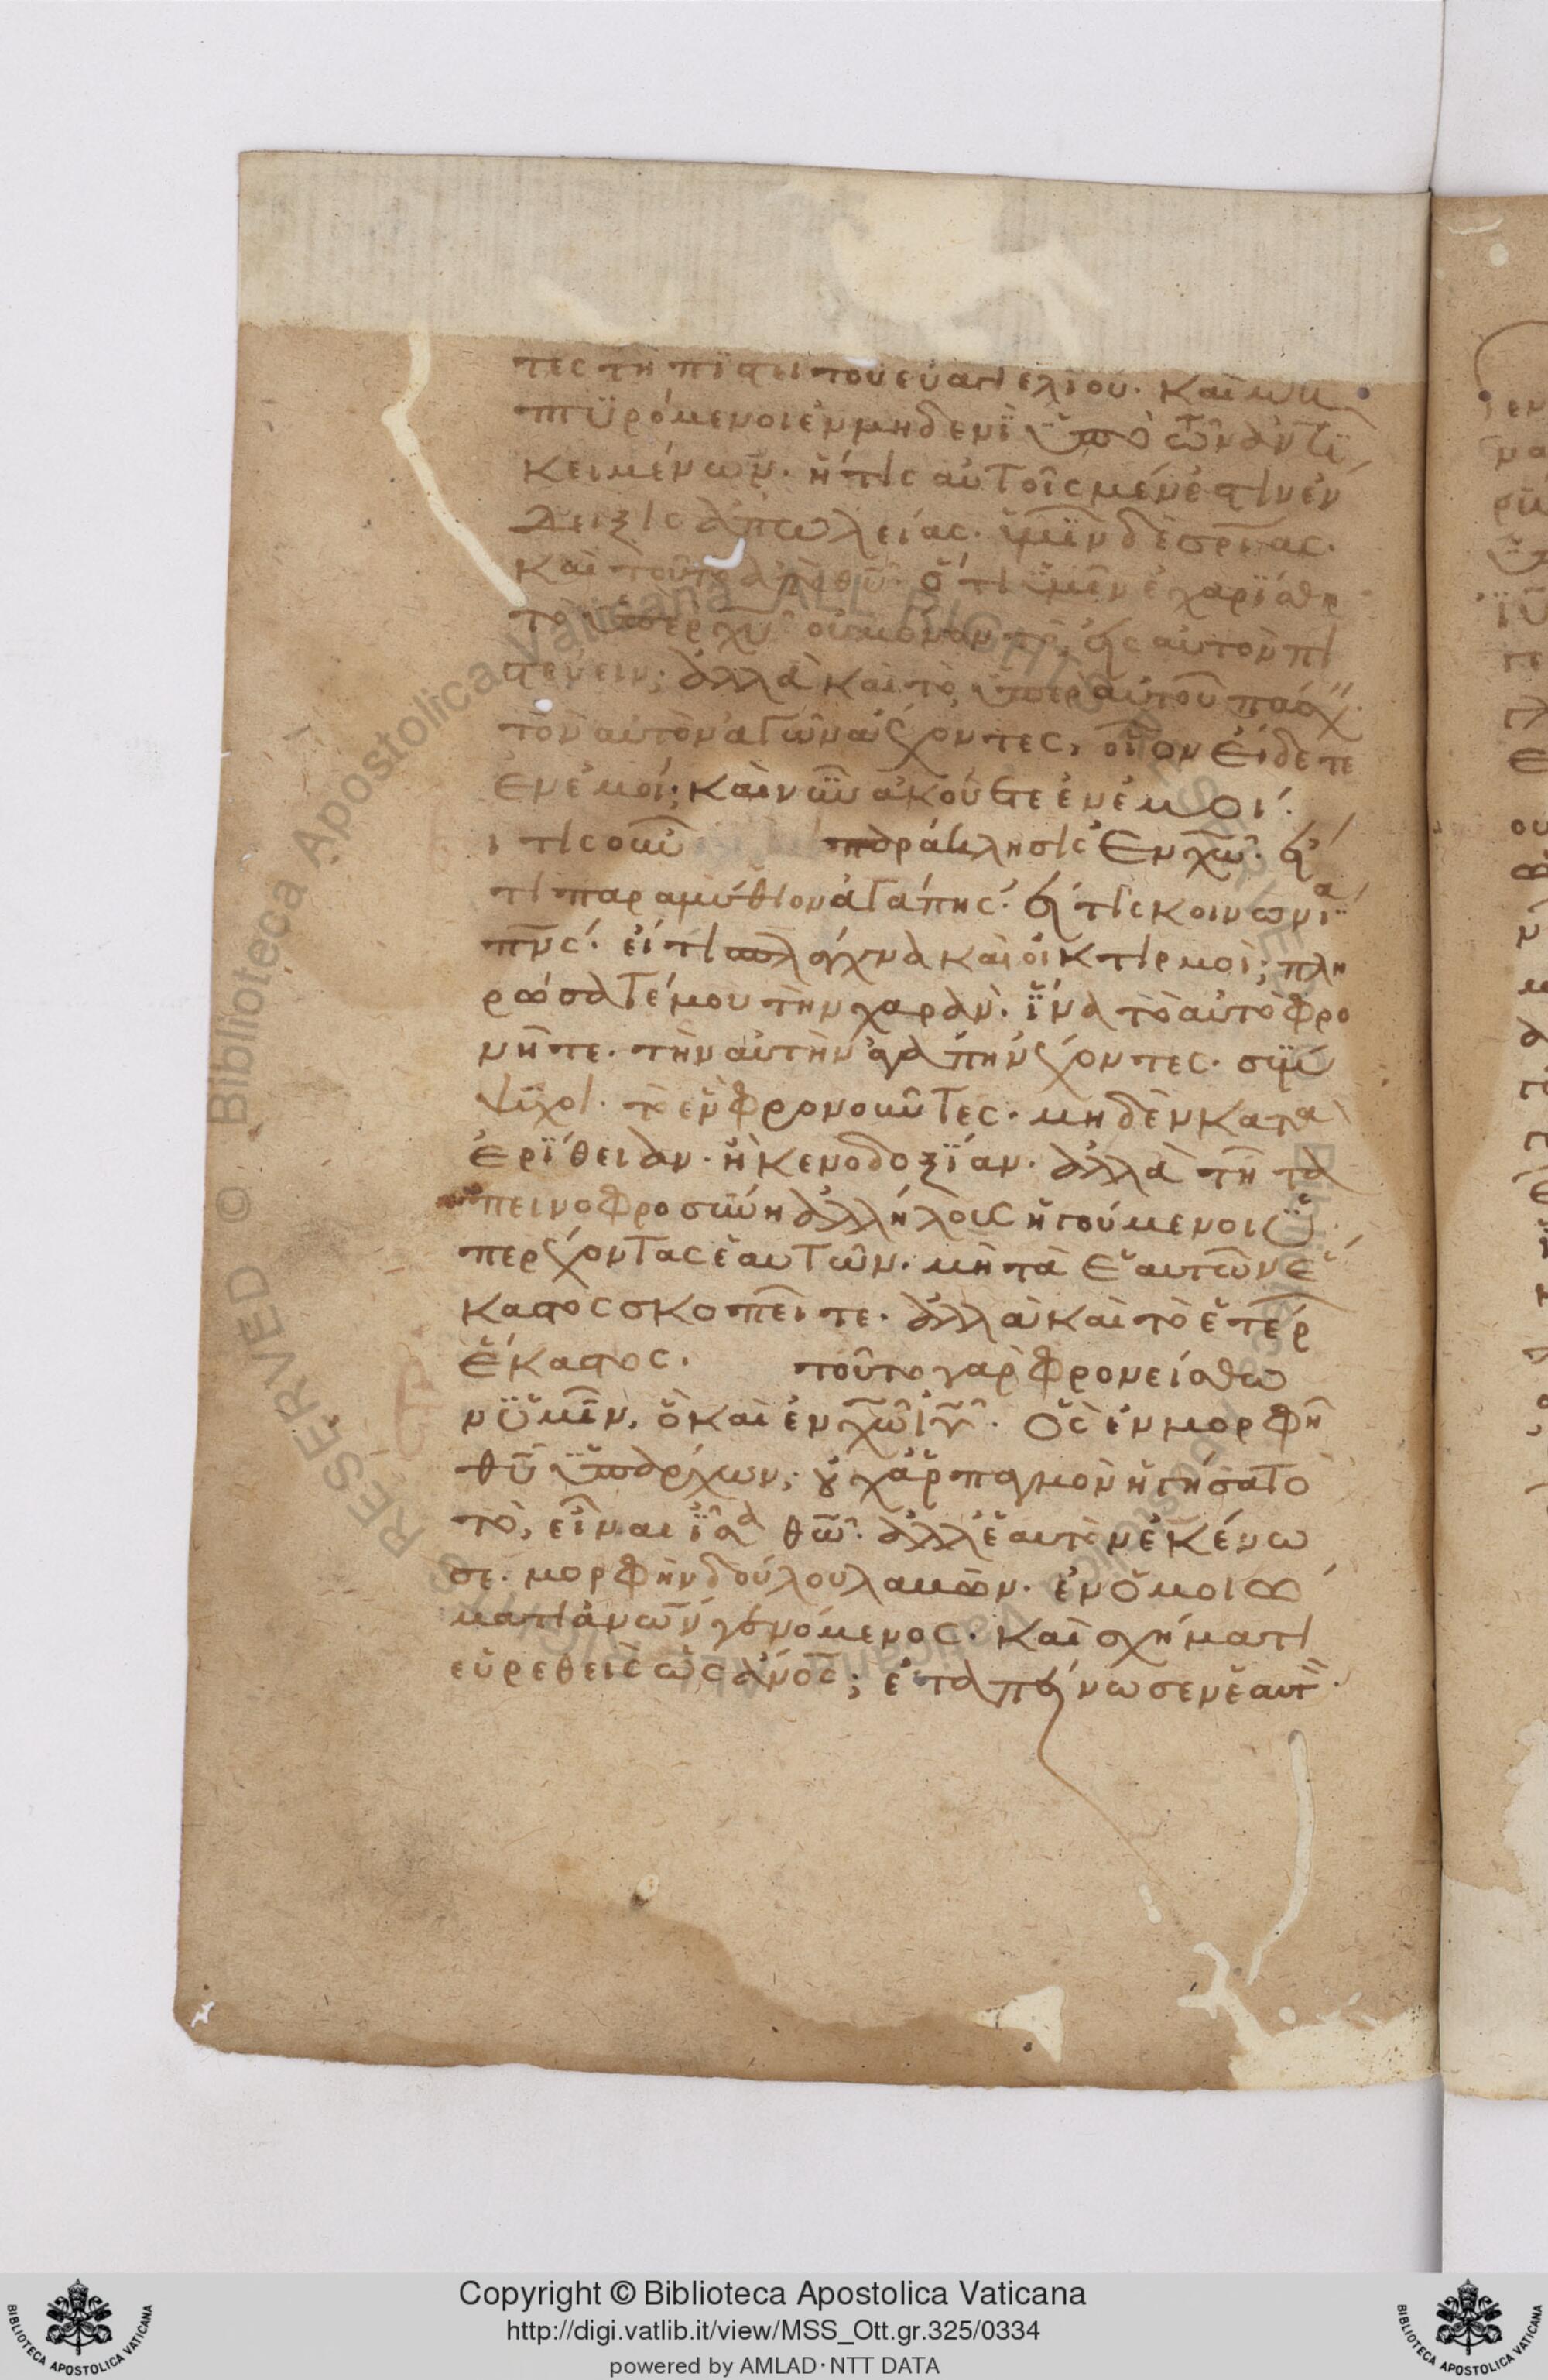 τες τῆ πίστει τοῦ εὐαγγελίου. καὶ μὴ
πτϋρόμενοι ἐν μηδενὶ ὑπὸ τῶν ἀντϊ
κειμένων. ἥτις αὐτοῖς μέν ἐστιν ἐν
δειξις ἀπωλείας. ὑμῖν δὲ σρίας.
καὶ τοῦτο ἀπὸ θῦ. ὅτι ὑμῖν ἐχαρίσθη
τὸ ὑπὲρ χυ οὐ μόνον τὸ, εἰς αὐτὸν πι
στεύειν; ἀλλὰ καὶ τὸ, ὑπὲρ αὐτοῦ πάσχ
τὸν αὐτὸν ἀγῶνα ἔχοντες, οἷον εἴδετε
ἐν ἐμοί; καὶ νῦν ἀκούετε ἐν ἐμοί.
ι τις οὖν παράκλησις ἐν χῶ. εἴ
τι παραμύθιον ἀγάπης. εἴ τις κοινωνία
πνς. εἴ τι σπλάγχνα καὶ οἰκτιρμοὶ; πλη
ρώσατέ μου τὴν χαράν. ἵνα τὸ αὐτὸ φρο
νῆτε. τὴν αὐτὴν ἀγάπην ἔχοντες. σύμ
ψϋχοι. τὸ ἓν φρονοῦντες. μηδὲν κατα
ἐρίθειαν. ἢ κενοδοξίαν. ἀλλὰ τῆ τα
πεινοφροσύνη ἀλλήλους ἡγούμενοι ὑ
περέχοντας ἑαυτῶν. μὴ τὰ ἑαυτῶν ἕ
καστος σκοπεῖτε. ἀλλὰ καὶ τὸ ἑτέρ
ἕκαστος. τοῦτο γὰρ φρονείσθω
ν ὑμῖν, ὃ καὶ ἐν χῶ ἰῦ. Ὃς ἐν μορφῆ
θῦ ὑπάρχων; οὐχ ἁρπαγμὸν ἡγήσατο
τὸ, εἶναι ἶσα θῶ. ἀλλ' ἑαυτὸν ἐκένω
σε. μορφὴν δούλου λαβών. ἐν ὁμοιώ
ματι ἀνων γενόμενος. καὶ σχήματι
εὑρεθεὶς ὡς ἀνος; ἐταπείνωσεν ἑαυτ
Copyright © Biblioteca Apostolica Vaticana
http://digi.vatlib.it/view/MSS_Ott.gr.325/0334
powered by AMLAD·NTT DATA